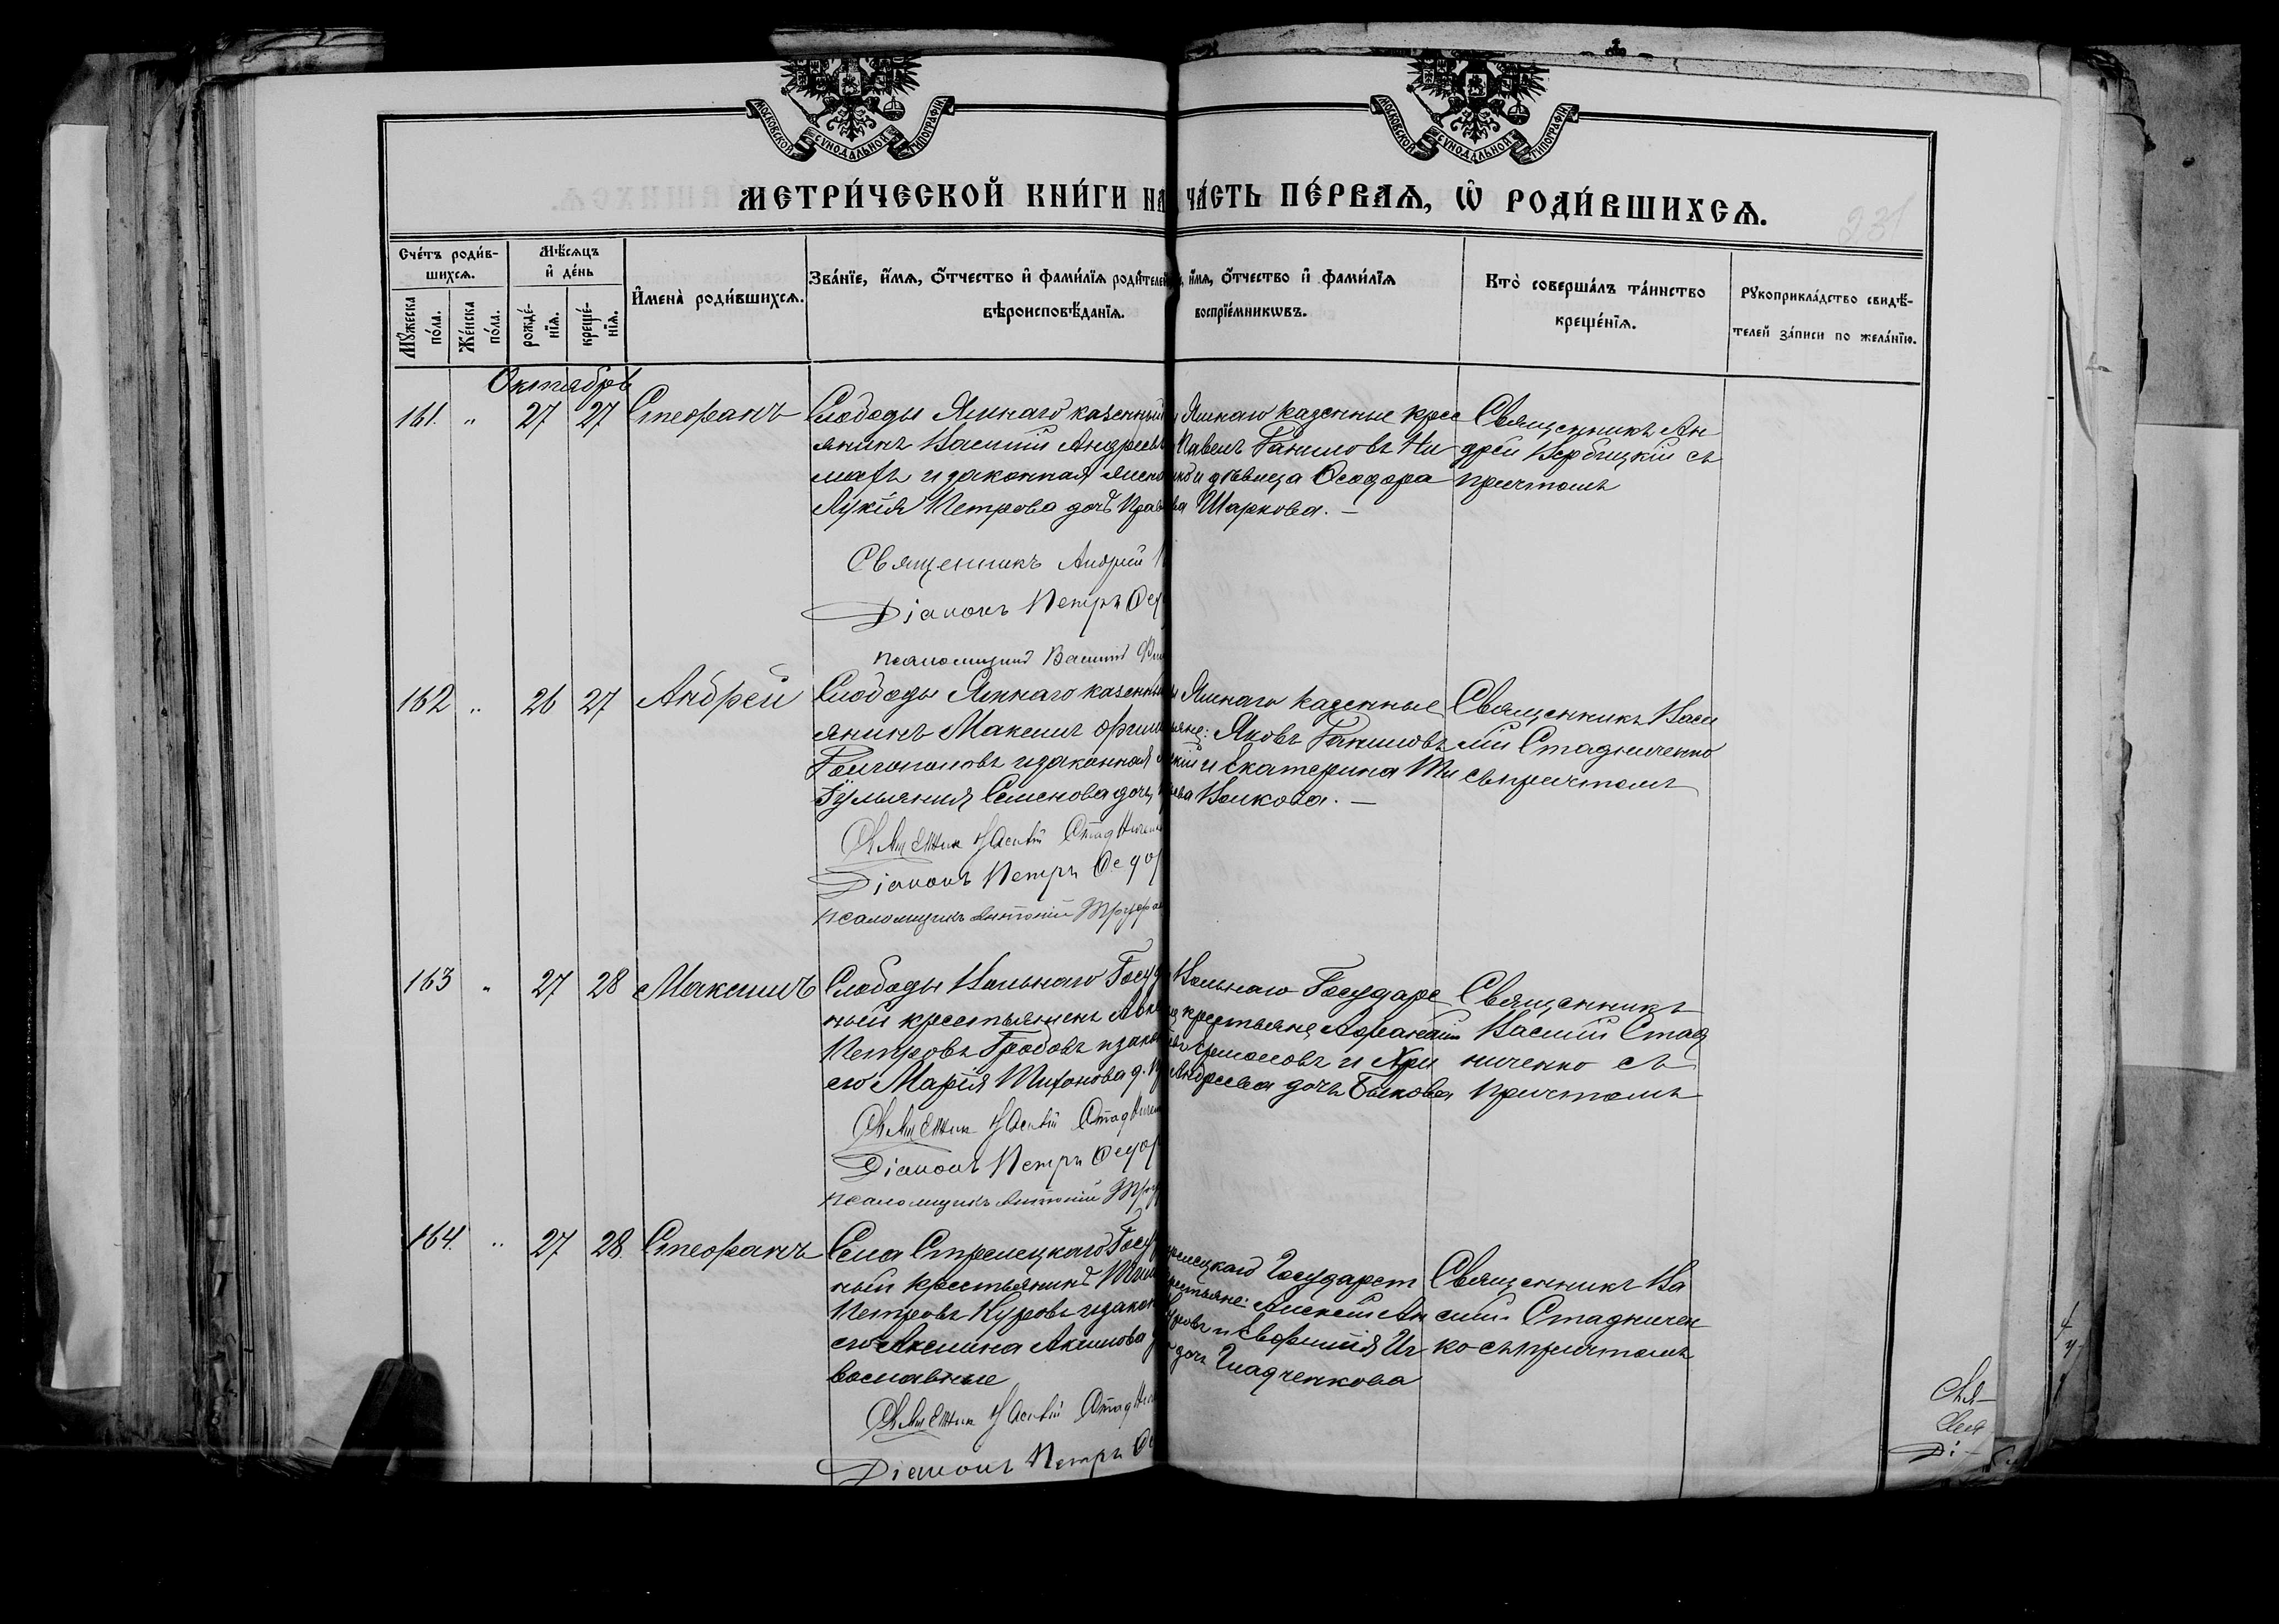 МОСКОВСКОЙ СѴНОДАЛЬНОЙ ТИПОГРАФІИ
МОСКОВСКОЙ СѴНОДАЛЬНОЙ ТИПОГРАФІИ
МЕТРИ́ЧЕСКОЙ КНИ́ГИ НА ЧА́СТЬ ПЕ́РВАѦ, Ѽ РОДИ́ВШИХСѦ.
231
Сче́тъ роди́в-
шихсѧ.
Мѣ́сѧцъ
и҆ де́нь
Мꙋ́жеска
по́ла.
Же́нска
по́ла.
рожде́-
нїѧ.
креще́-
нїѧ.
И҆мена̀ роди́вшихсѧ.
Зва́нїе, и҆́мѧ, ѻ҆́тчество и҆ фами́лїѧ роди́телей
вѣроисповѣ́данїѧ.
и҆́мѧ, ѻ҆́тчество и҆ фами́лїѧ
воспрїе́мникѡвъ.
Кто̀ соверша́лъ та́инство
креще́нїѧ.
Рꙋкоприкла́дство свидѣ́-
телей за́писи по жела́нїю.
Октябрь
161. " 27 27 Стефанъ
Слободы Ямнаго казенный
янинъ Василій Андреевъ
и законная
Лукія Петрова дочь Прав
Ямнаго казенные крес
Павелъ Даниловъ Ни
и дѣвица Ѳеодора
Шаркова. —
Священникъ Ан
дрей Вербицкій съ
причтомъ
Священникъ Андрей
Діаконъ Петръ Ѳед
Псаломщикъ Василій
162 " 26 27 Андрей
Слободы Ямнаго казенны
янинъ Максимъ
и законная
Семенова дочь
Ямнаго казенные
яне: Яковъ Даниловъ
и Екатерина Ти
Волкова. —
Священникъ Васи
лій Стадниченко
съ причтомъ
Священник Василій Стадничен
Діаконъ Петръ Ѳедор
Псаломщикъ Антоній
163 " 27 28 Максимъ
Слободы Вольнаго Госуд
ный крестьянинъ
Петровъ Гробовъ и закон
его Марія Тихонова д. Пр
Вольнаго Государс
крестьяне Афанасій
и Хри
Андреева дочь Быкова
Священникъ
Василій Стад
ниченко съ
причтомъ
Священник Василій Стадничен
Діаконъ Петръ Ѳедор
Псаломщикъ Антоній
164. " 27 28. Стефанъ
Села Стрелецкаго Госу
ный крестьянинъ Тим
Петровъ Куровъ и закон
его Акилина Акимова
вославные
релецкаго Государст
рестьяне: Алексѣй Ан
и Евфимія Иг
дочь Гладченкова
Священникъ Ва
силій Стадничен
ко съ причтомъ
Священник Василій Стадни
Діаконъ Петръ Ѳе